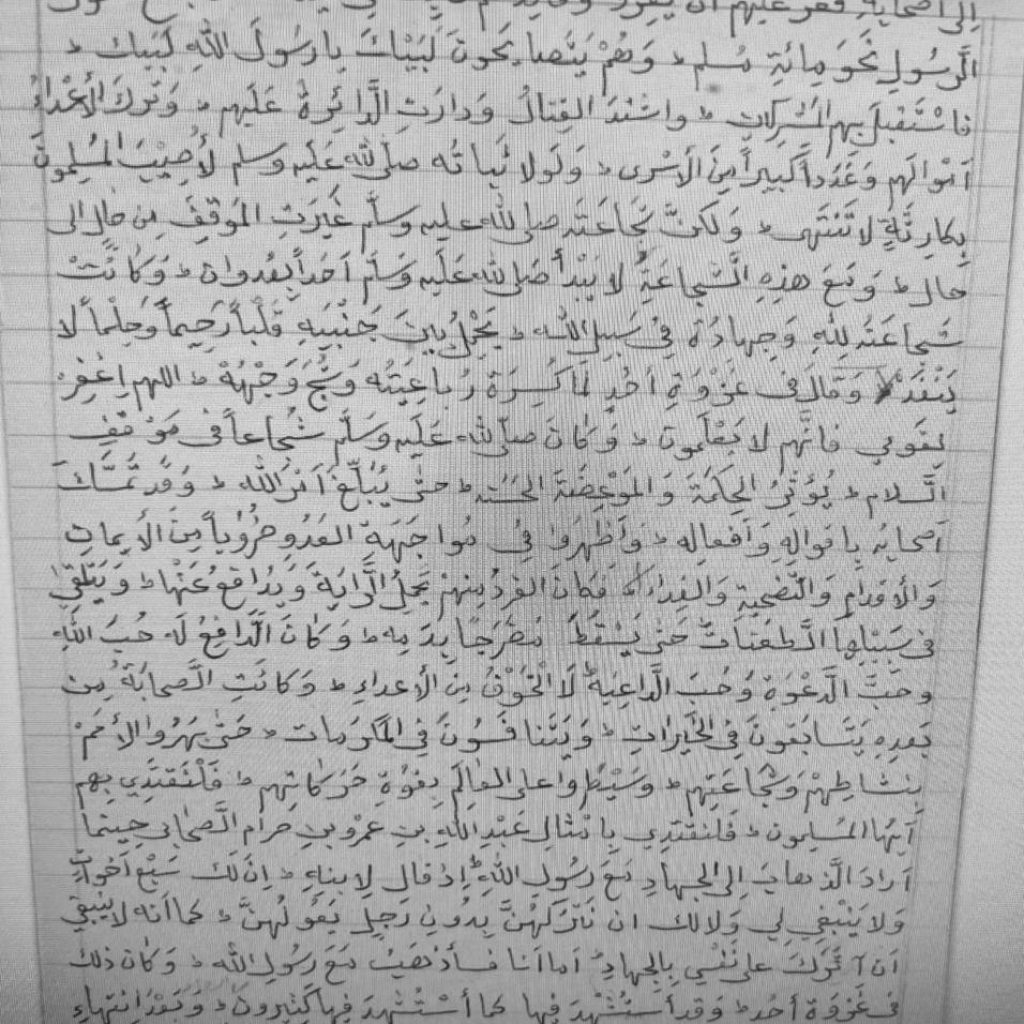 إلى أصحابه
الرَّسُولِ نَحْوَ مِائَةِ مُسلم ـ وَهُمْ يَتَصَايَحُونَ لَبَّيْكَ يا رَسُولَ اللهِ لَبَّيك ـ
فاسْتَقْبَلَ بِهِمِ المُشْرِكِينَ ـ واشْتَدَّ القِتالُ وَدارَتِ الدَّائِرَةُ عَلَيهم ـ وَتَرَكَ الأَعْداءُ
أَمْوالَهم وَعَدَداً كَبيراً مِنَ الأَسْرى ـ وَلَولا ثَباتُه صلى الله عَلَيه وسلم لأُصِيْبَ المُسلِمُونَ
بِكارِثَةٍ لا تَنْتَهي ـ وَلَكنَّ شَجاعَتَه صلى الله عليه وسلَّم غَيَّرَتِ المَوقِفَ مِن حال إلى
حال ـ وَمَعَ هذِهِ الشَّجاعَةِ لا يَبْدأُ صَلى الله عَلَيه وَسَلَّم أَحَداً بِعُدوان ـ وَكانَتْ
شَجاعَتُه لِلهِ وَجِهادُهُ فِي سَبِيلِ الله ـ يَحْمِلُ بَينَ جَنْبَيهِ قَلْباً رَحِيماً وَحِلْماً لا
يَنْفَدُ وَقالَ في غَزْوَةِ أُحُدٍ لَمَّا كُسِرَة رُباعِيَتُه وَشُجَّ وَجْهُهُ ـ اللهم اِغْفِرْ
لقومي فانَّهم لا يَعْلَمون ـ وَكانَ صلى الله عَلَيه وسَلَّم شُجاعاً في مَوْقِفِ
السَّلام ـ يُؤْتِيُ الحِكمَةَ وَالمَوْعِضَةَ الحَسَنَه ـ حتى يُبَلِّغَ أَمْرَ الله ـ وَقَد تَمَسَّكَ
أَصحابُه بِأقوالِهِ وَأفعالِه ـ وَأَظْهَرُوا فِي مُواجَهَةِ العَدُوِ ضُرُوباً مِنَ الأيمانِ
وَالأقدامِ وَالتَّضْحِيَةِ وَالفِداء فَكانَ الفَرْدُ مِنهمْ يَحْمِلُ الرَّايَةَ وَيُدافِعُ عَنْها ـ وَيَتَلَقى
في سَبيْلِها الطَّعَناتِ حَتى يَسْقُطَ مُضَرَّجاً بِدَمِه ـ وَكانَ الدَّافِعُ لَه حُبَ اللهِ
وحُبَّ الدَّعْوَةِ وَحُبَ الدَّاعِيَةِ لا الخَوْفُ مِنَ الأعداءِ ـ وَكانَتِ الصَّحابَةُ مِن
بَعدِهِ يَتَسابَقونَ فِي الخَيْراتِ ـ وَيَتَنافَسُونَ فِي المَكْرُمات ـ حَتى بَهَرُوا الأُمَمْ
بِنَشاطِهِمْ وَشَجاعَتِهم ـ وَسَيْطَرُوا على العالَمِ بِقوَّةِ حَرَكاتِهم ـ فَلْنَقتَدِي بِهم
أيُّها المُسْلِمون ـ فَلنَقتَدِي بِامْثالِ عَبْدِ اللهِ بنِ عَمْرِو بنِ حرام الصَّحابي حِينَما
أرادَ الذَّهابَ إلى الجِهادِ مَعَ رَسُولِ اللهِ إذ قال لابنِهِ ـ انَّ لَكَ سَبْعَ أخَواتٍ
وَلا يَنْبَغي لِي وَلا لك ان نَتْرُكَهُنَّ بِدُونِ رَجِلٍ يَعُولُهُنَّ ـ كما أنه لا يَنْبَغِي
أَن آثَرَكَ على نَفْسي بِالجِهادِ ـ أما أنا فسأذهَبُ مَعَ رَسُولِ الله ـ وَكان ذلك
في غَزْوَةِ أُحُد ـ وَقَد أُسْتُشْهِدَ فِيها كما أُسْتُشْهِدَ فِيها كَثِيرونَ ـ وَبَعْدَ انتِهاءِ